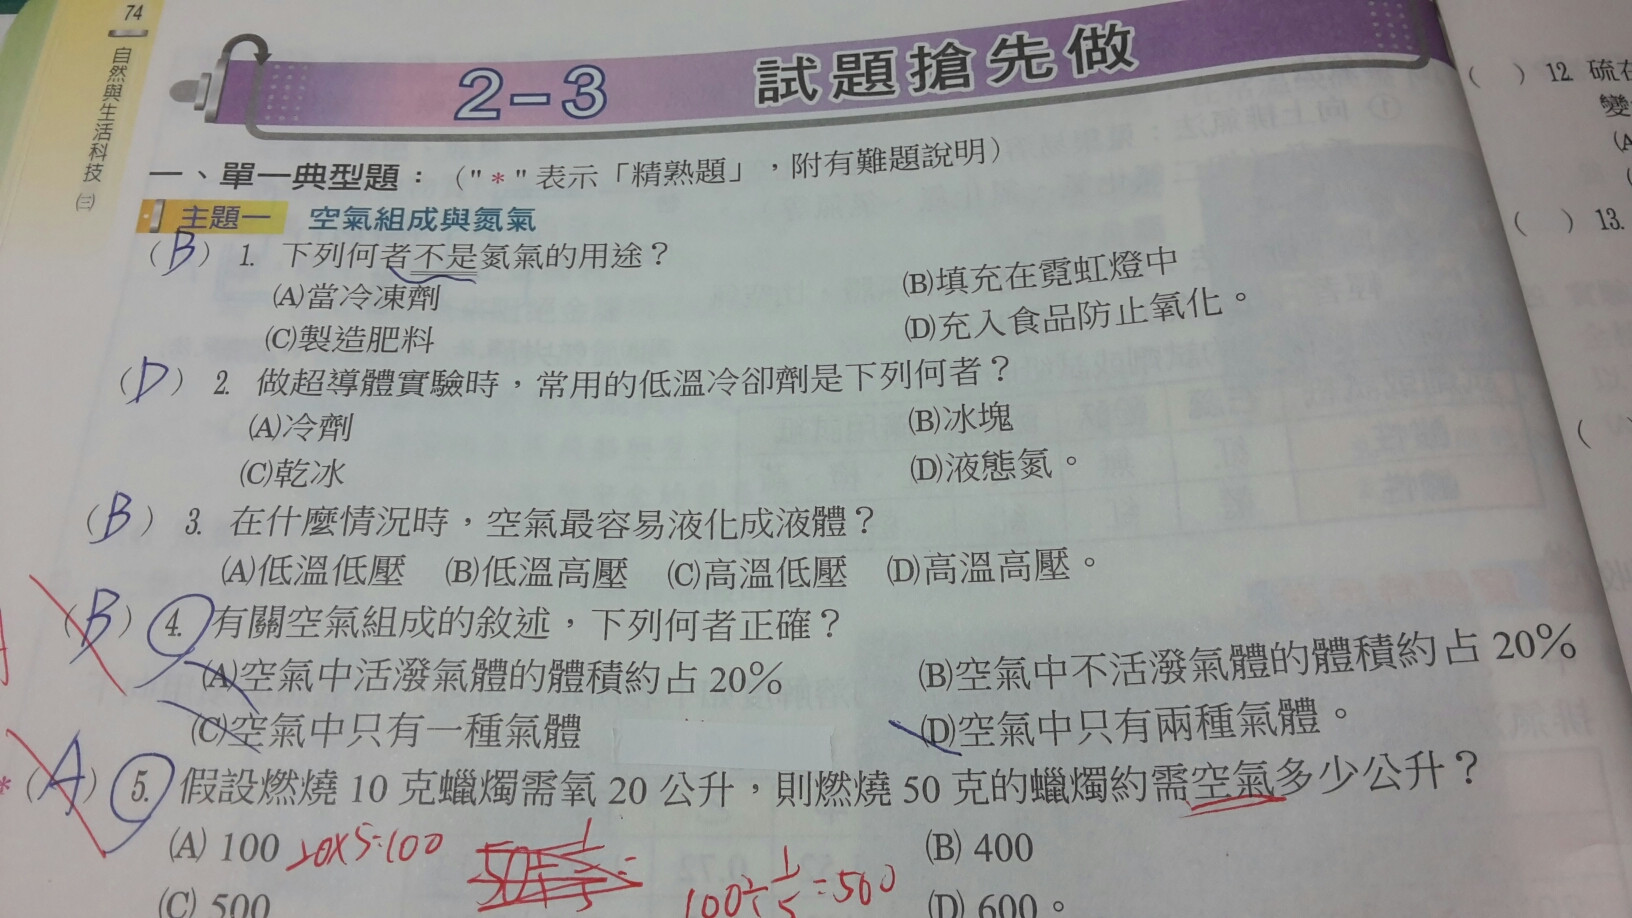 74
自然與生活科技
㈢
2-3 試題搶先做
一、單一典型題：（"*"表示「精熟題」，附有難題說明）
主題一 空氣組成與氮氣
（B）1. 下列何者不是氮氣的用途？
(A)當冷凍劑 (B)填充在霓虹燈中
(C)製造肥料 (D)充入食品防止氧化。
（D）2. 做超導體實驗時，常用的低溫冷卻劑是下列何者？
(A)冷劑 (B)冰塊
(C)乾冰 (D)液態氮。
（B）3. 在什麼情況時，空氣最容易液化成液體？
(A)低溫低壓 (B)低溫高壓 (C)高溫低壓 (D)高溫高壓。
（B）4. 有關空氣組成的敘述，下列何者正確？
(A)空氣中活潑氣體的體積約占 20% (B)空氣中不活潑氣體的體積約占 20%
(C)空氣中只有一種氣體 (D)空氣中只有兩種氣體。
*（A）5. 假設燃燒 10 克蠟燭需氧 20 公升，則燃燒 50 克的蠟燭約需空氣多少公升？
(A) 100 20×5=100 (B) 400
(C) 500 100÷1/5=500 (D) 600。
（ ）12. 硫在
變
(A
（ ）13.
（